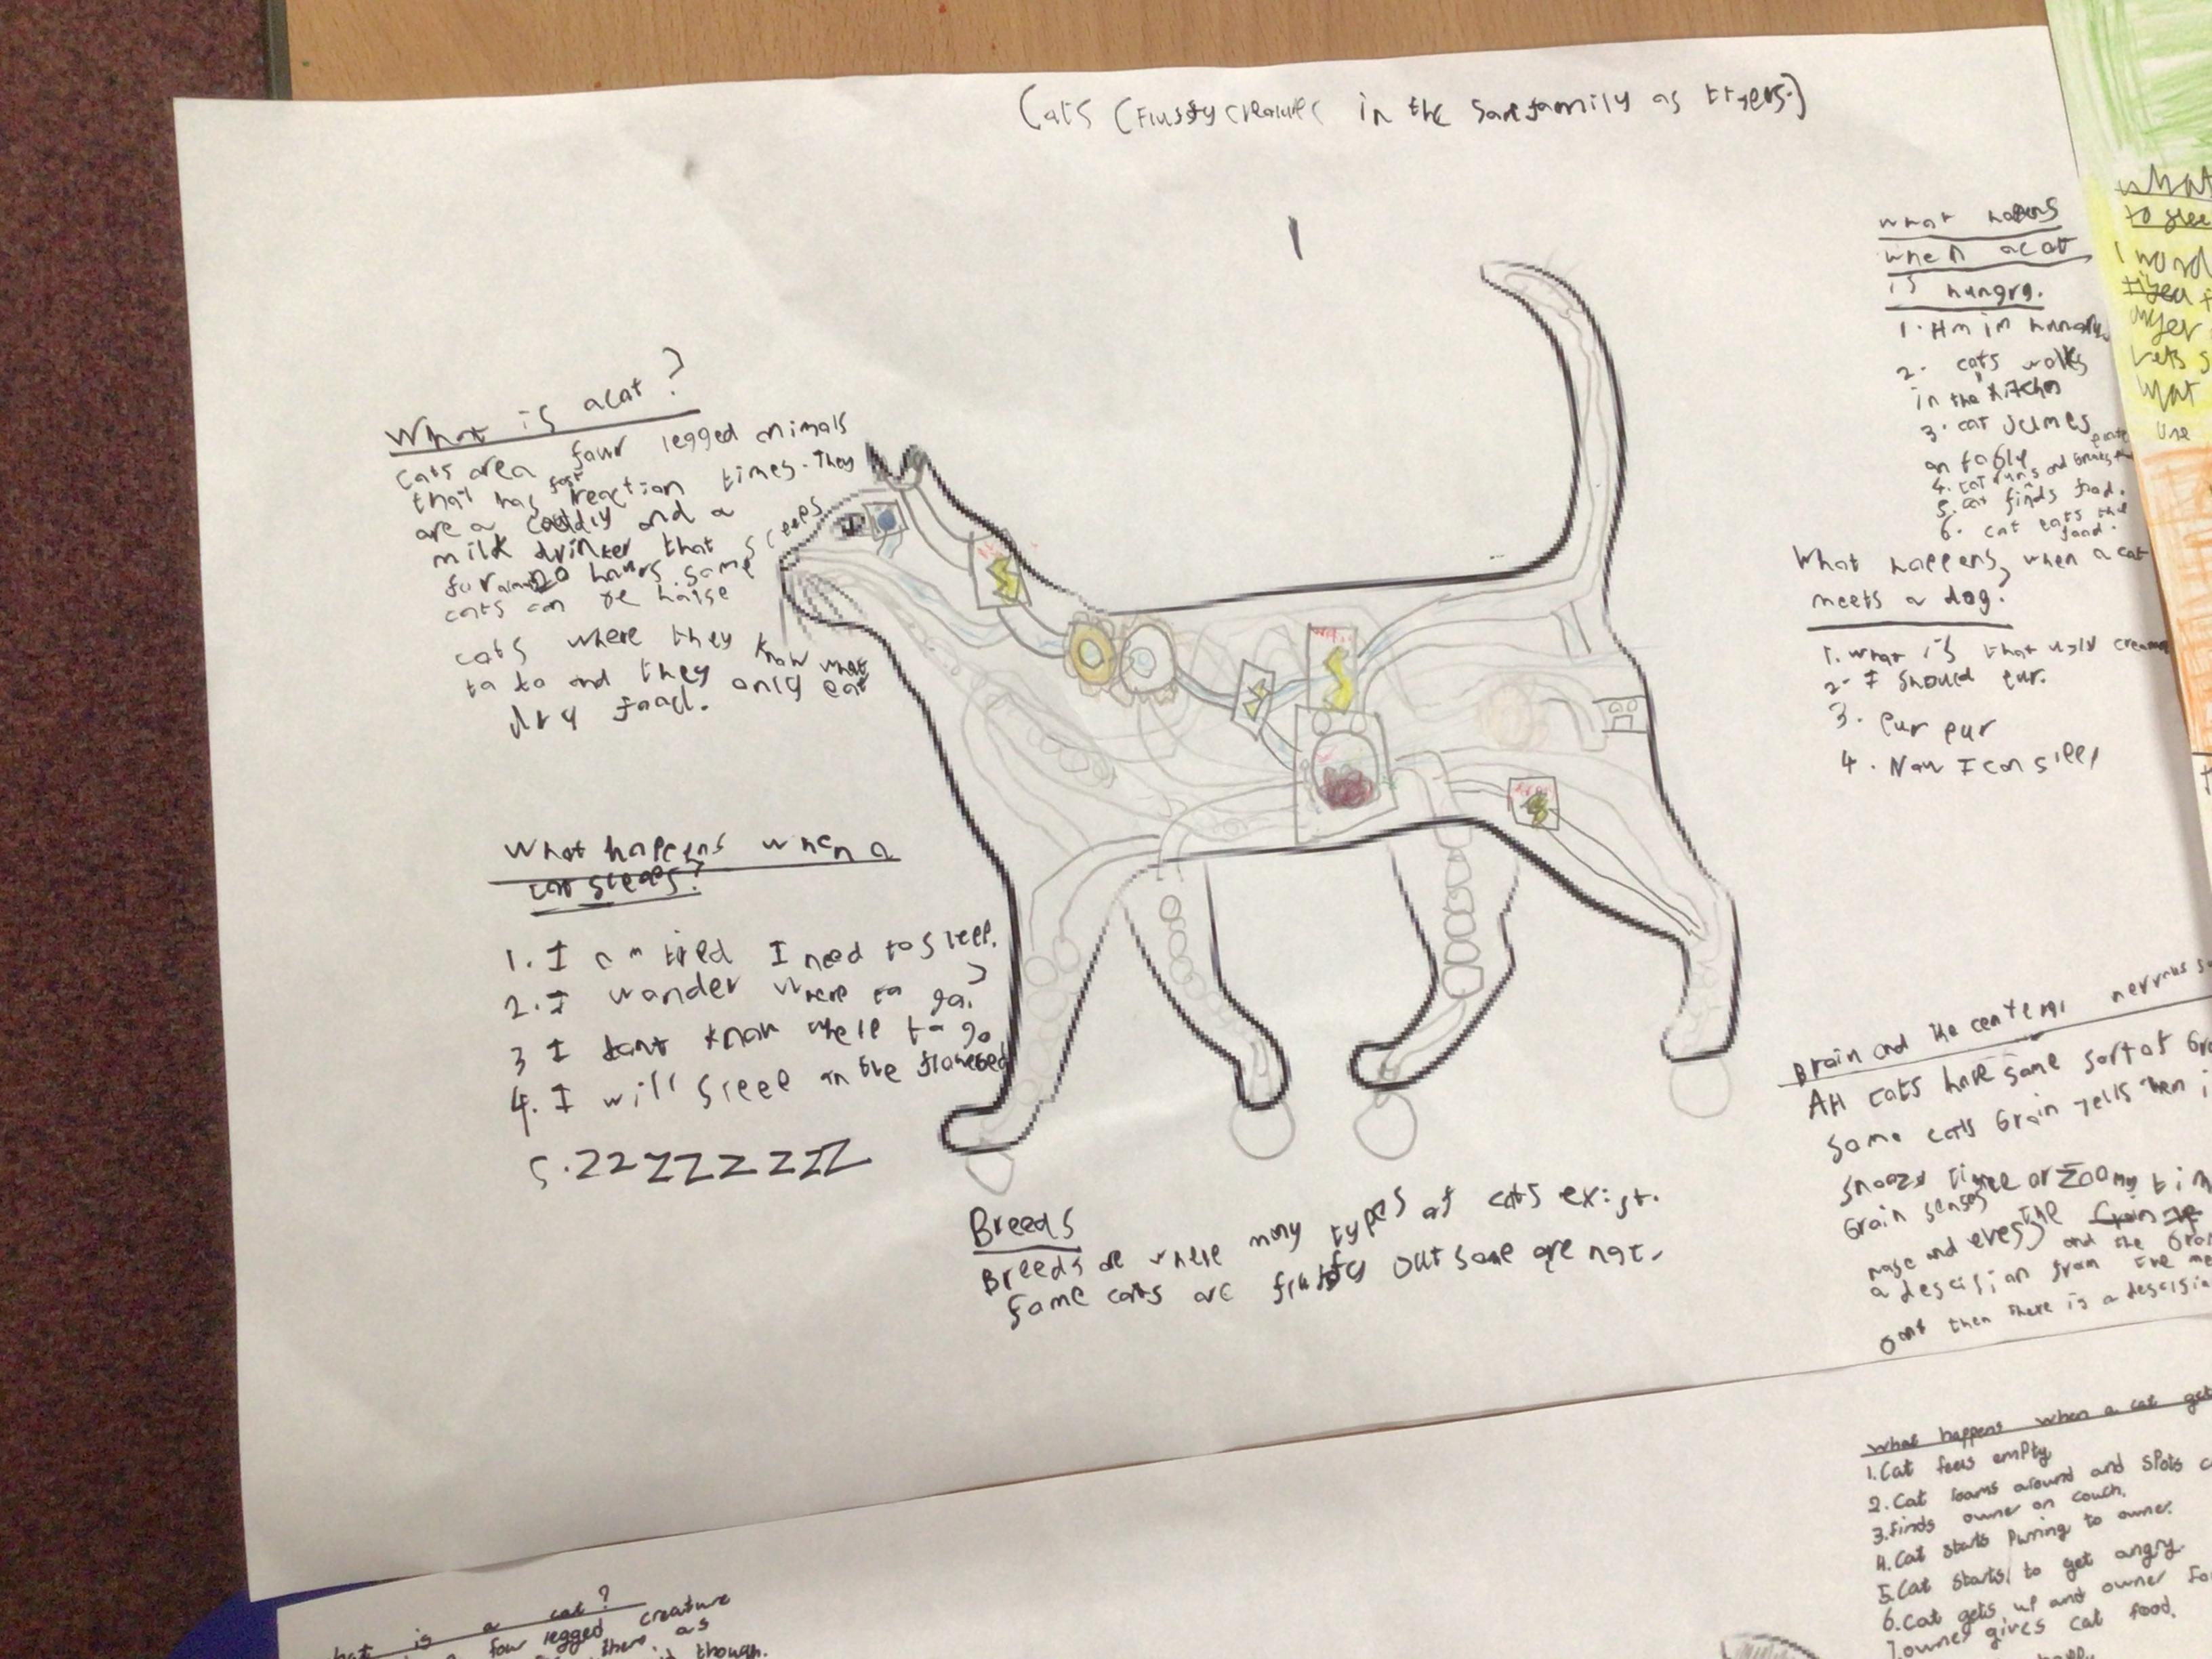 Cats (Flussfy creatures in the same family as tigers.)
What is a cat?
Cats are a four legged animals
that has fast reaction times. They
are a cuddly and a
milk drinker that sleeps
for 20 hours. some
cats can be haise
cats where they know what
to to and they only eat
dry food.
What happens when a
cat sleeps?
1. I am tired I need to sleep.
2. I wander where to go?
3 I dant know where to go
4. I will sleep on the flowerbed
5. ZZZZZZZZZ
Breeds
Breeds are where many types of cats exist.
Some cats are fluffy but some are not.
what happens
when a cat
is hungry.
1. Hm im hungry.
2. cats walks
in the kitchen
3. cat Jumps
on table
4. cat runs and breaks
plate
5. cat finds food.
6. cat eats the
food.
What happens when a cat
meets a dog?
1. what is that ugly
2. I should pur.
3. Pur pur
4. Now I can sleep
Brain and the centeral nervous
All cats have some sort of
Some cats brain tells them
Snooze time or Zoomy
brain senses
nose and eyes the
and the
a descision from the
then there is a
What
to slee
What
use
What happens when a cat
1. Cat feels empty
2. Cat roams around and spots
3. Finds owner on couch.
4. Cat starts Purring to owner.
5. Cat starts to get angry.
6. Cat gets up and owner
7. owner gives cat food.
is a cat?
four legged creature
as
though.